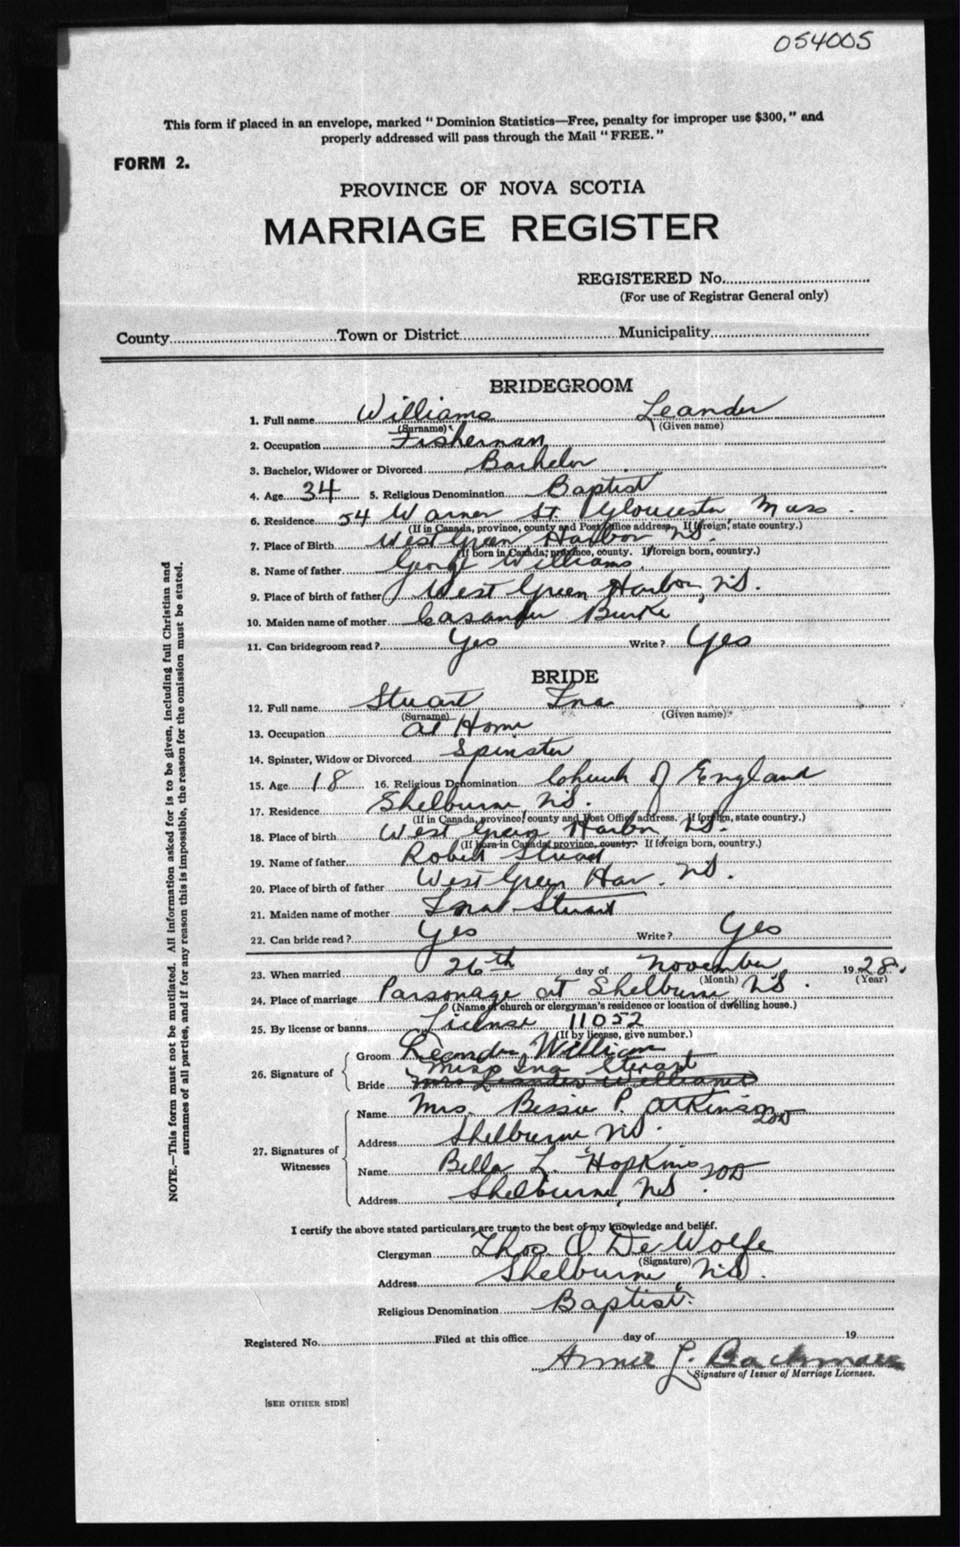 054005
This form if placed in an envelope, marked "Dominion Statistics—Free, penalty for improper use $300," and
properly addressed will pass through the Mail "FREE."
FORM 2.
PROVINCE OF NOVA SCOTIA
MARRIAGE REGISTER
REGISTERED No.
(For use of Registrar General only)
County Town or District Municipality
BRIDEGROOM
1. Full name Williams Leander
(Surname) (Given name)
2. Occupation Fisherman
3. Bachelor, Widower or Divorced Bachelor
4. Age 34 5. Religious Denomination Baptist
6. Residence 54 Warner St. Gloucester, Mass
(If in Canada, province, county and Post Office address. If foreign, state country.)
7. Place of Birth West Green Harbor N.S.
(If born in Canada, province, county. If foreign born, country.)
8. Name of father George Williams
9. Place of birth of father West Green Harbor, N.S.
10. Maiden name of mother Casander Burke
11. Can bridegroom read? Yes Write? Yes
BRIDE
12. Full name Stuart Ina
(Surname) (Given name)
13. Occupation at Home
14. Spinster, Widow or Divorced Spinster
15. Age 18 16. Religious Denomination Church of England
17. Residence Shelburne N.S.
(If in Canada, province, county and Post Office address. If foreign, state country.)
18. Place of birth West Green Harbor, N.S.
(If born in Canada, province, county. If foreign born, country.)
19. Name of father Robert Stuart
20. Place of birth of father West Green Har. N.S.
21. Maiden name of mother Ina Stuart
22. Can bride read? Yes Write? Yes
23. When married 26th day of November 1928.
(Month) (Year)
24. Place of marriage Parsonage at Shelburne N.S.
(Name of church or clergyman's residence or location of dwelling house.)
25. By license or banns License 11052
(If by license, give number.)
26. Signature of Groom Leander William
Miss Ina Sterart
Bride Mrs Leander Williams
27. Signatures of Witnesses
Name Mrs. Bessie P. Atkinson
Address Shelburne N.S.
Name Bella L. Hopkins
Address Shelburne, N.S.
I certify the above stated particulars are true to the best of my knowledge and belief.
Clergyman Thos. O. DeWolfe
(Signature)
Address Shelburne, N.S.
Religious Denomination Baptist.
Registered No. Filed at this office day of 19
Annie L. Bachman
Signature of Issuer of Marriage Licenses.
[SEE OTHER SIDE]
NOTE.—This form must not be mutilated. All information asked for is to be given, including full Christian and
surnames of all parties, and if for any reason this is impossible, the reason for the omission must be stated.